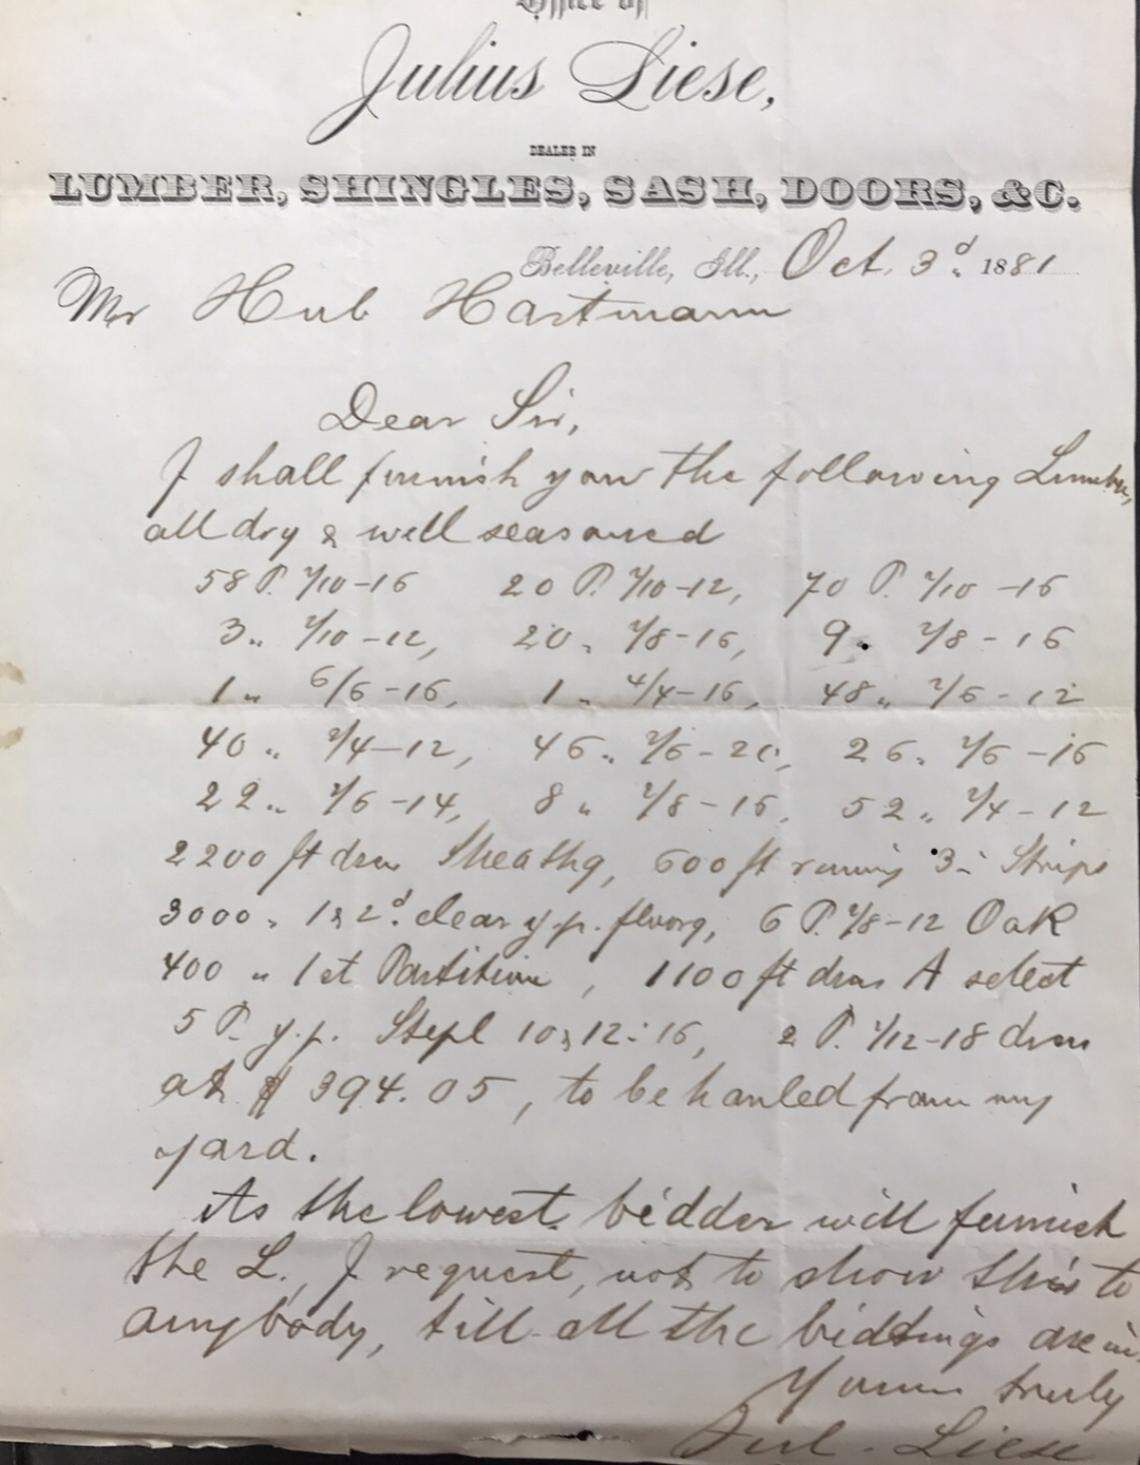 Office of
Julius Liese,
DEALER IN
LUMBER, SHINGLES, SASH, DOORS, &C.
Belleville, Ill., Oct. 3d. 1881
Mr Hub Hartmann
Dear Sir,
I shall furnish you the following Lumber,
all dry & well seasoned
58 P. 2/10-16 20 P. 2/10-12, 70 P. 2/10-16
3 " 2/10-12, 20 " 2/8-16, 9 " 2/8-16
1 " 6/6-16, 1 " 4/4-16, 48 " 2/6-12
40 " 2/4-12, 46 " 2/6-20, 26 " 2/6-16
22 " 2/6-14, 8 " 2/8-16, 52 " 2/4-12
2200 ft drss Sheathg, 600 ft runing 3" Strips
3000 " 1 & 2d. clear y.p. floorg, 6 P. 2/8-12 Oak
400 " 1st Partition, 1100 ft drss A select
5 P. y.p. Stepl 10 & 12-16, 2 P. 1/12-18 drss
at $394.05, to be hauled from my
yard.
As the lowest bidder will furnish
the L., I request, not to show this to
anybody, till all the biddings are in.
Yours truly
Jul. Liese